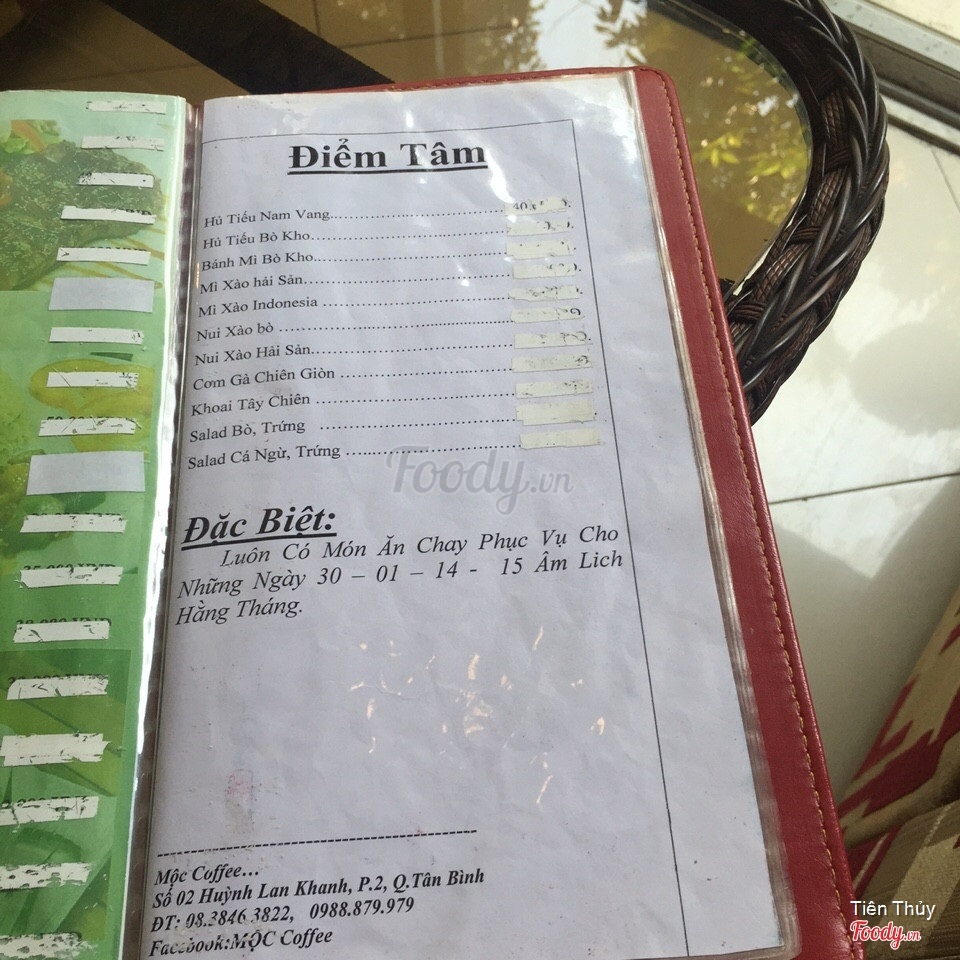 Điểm Tâm
Hủ Tiếu Nam Vang
Hủ Tiếu Bò Kho
Bánh Mì Bò Kho
Mì Xào hải Sản
Mì Xào Indonesia
Nui Xào bò
Nui Xào Hải Sản
Cơm Gà Chiên Giòn
Khoai Tây Chiên
Salad Bò, Trứng
Salad Cá Ngừ, Trứng
Foody.vn
Đặc Biệt:
Luôn Có Món Ăn Chay Phục Vụ Cho
Những Ngày 30 – 01 – 14 - 15 Âm Lich
Hằng Tháng.
Mộc Coffee…
Số 02 Huỳnh Lan Khanh, P.2, Q.Tân Bình
ĐT: 08.3846.3822, 0988.879.979
Facebook:MỘC Coffee
Tiên Thủy
Foody.vn